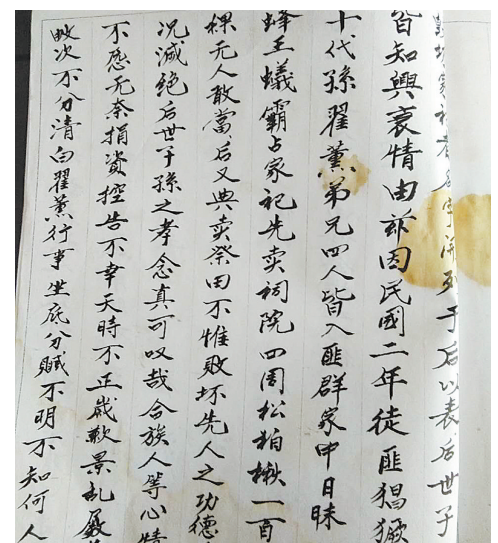 開列于后以表后世子
皆知興衰情由茲因民國二年徒匪猖獗
十代孫翟薰弟兄四人皆入匪群家中日昧
蜂王蟻霸占家祀先卖祠院四周松柏楸一百
棵无人敢當后又典卖祭田不惟敗坏先人之功德
况滅絕后世子孫之孝念真可叹哉合族人等心情
不忍无奈捐资控告不幸天時不正歲歉景乱屡
數次不分清白翟薰行事坐底分贓不明不知何人